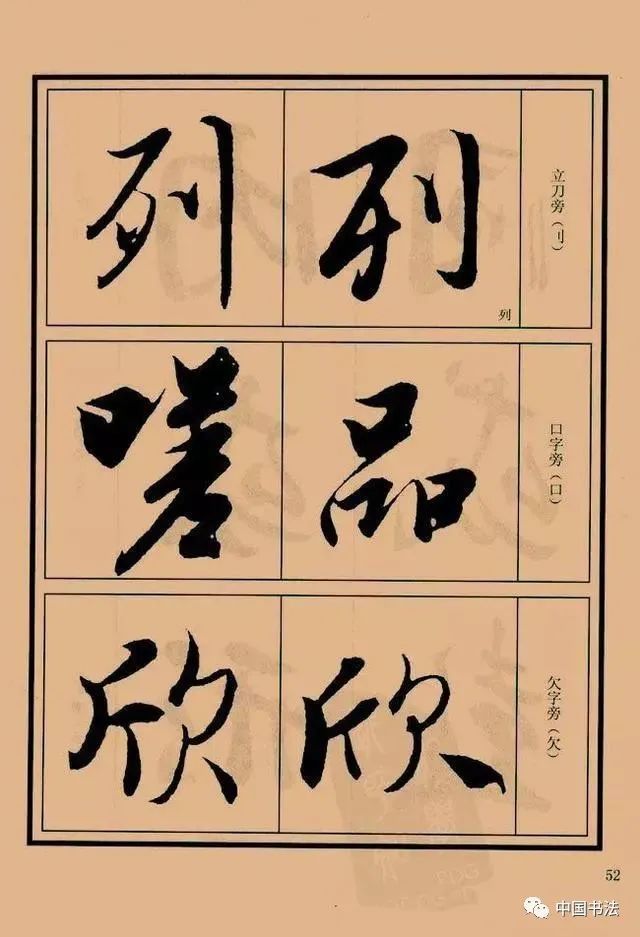 立刀旁（刂）
列
列
列
口字旁（口）
品
嗟
欠字旁（欠）
欣
欣
52
中国书法